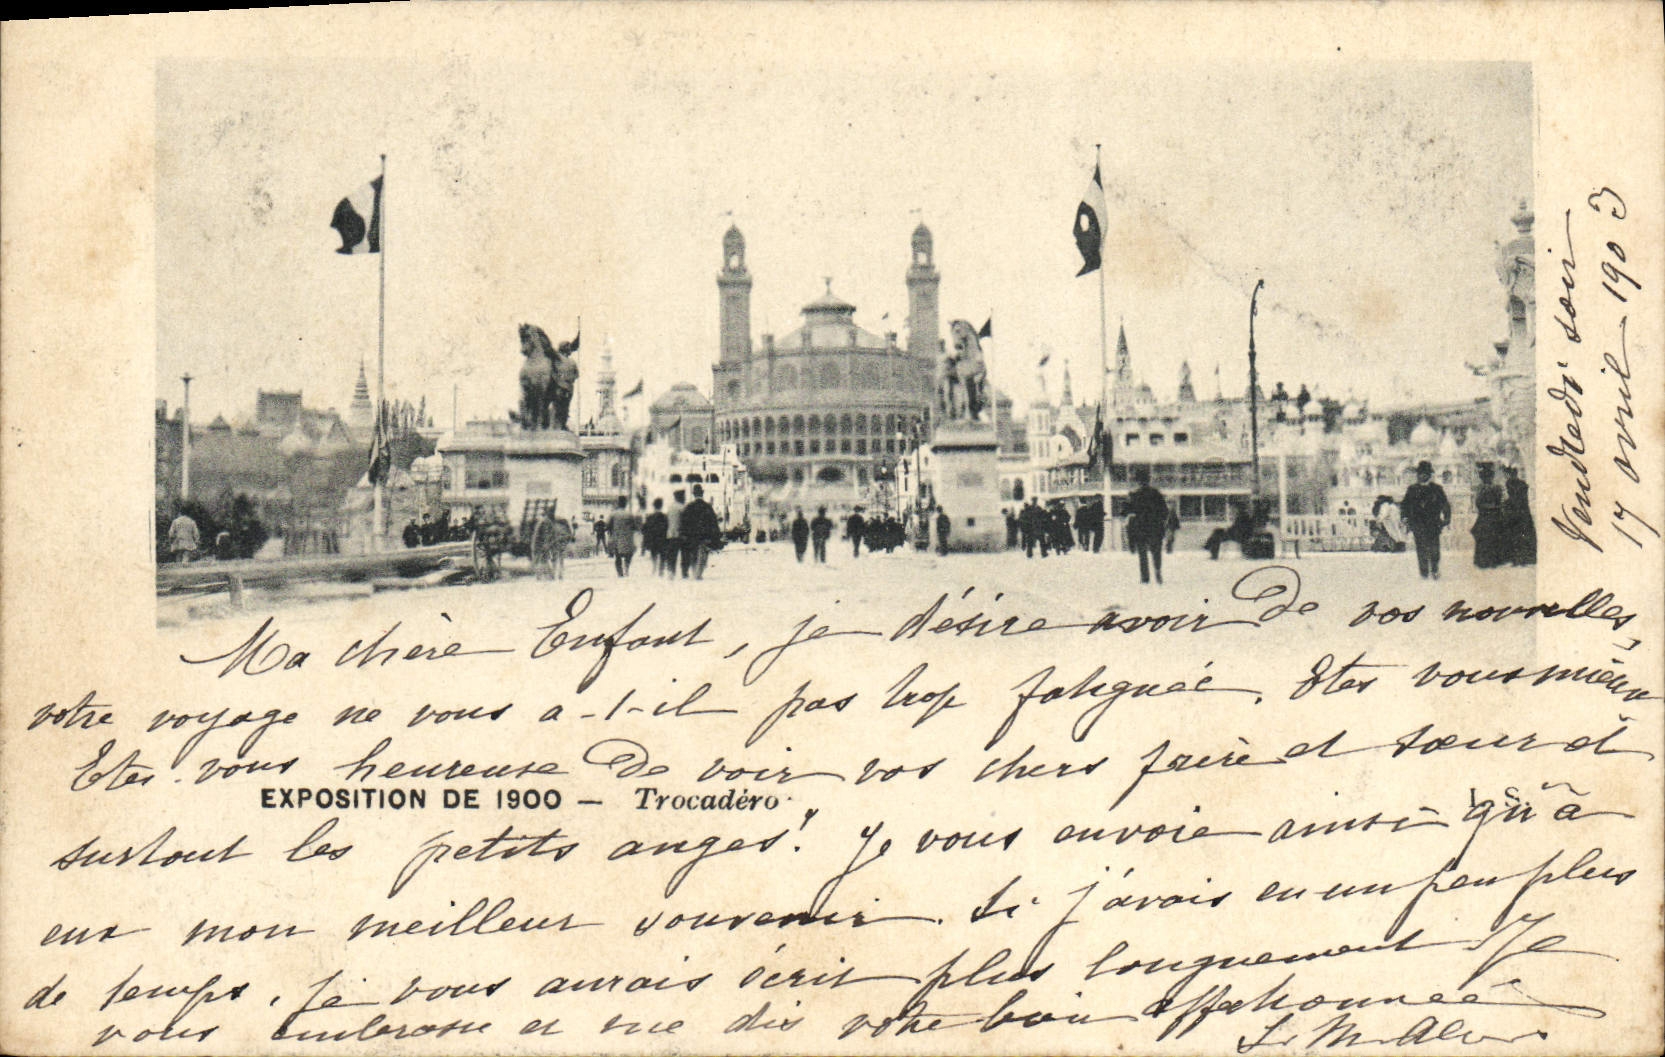 Vendredi soir
17 avril 1903
Ma chère Enfant, je désire avoir de vos nouvelles,
votre voyage ne vous a-t-il pas trop fatiguée. Etes vous mieux
Etes-vous heureuse de voir vos chers frère et sœur et
EXPOSITION DE 1900 — Trocadéro
surtout les petits anges! Je vous envoie ainsi qu'à
eux mon meilleur souvenir. Si j'avais eu un peu plus
de temps, je vous aurais écrit plus longuement Je
vous embrasse et me dis votre bien affectionnée